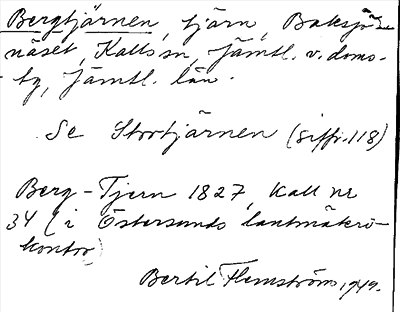 Bergtjärnen, tjärn, Baksjö-
näset, Kalls sn, Jämtl. v. doms.
by, Jämtl. län.
Se Stortjärnen (siffr. 118)
Berg-Tjern 1827, Kall nr
34 (i Östersunds lantmäteri-
kontor)
Bertil Flemström, 1949.